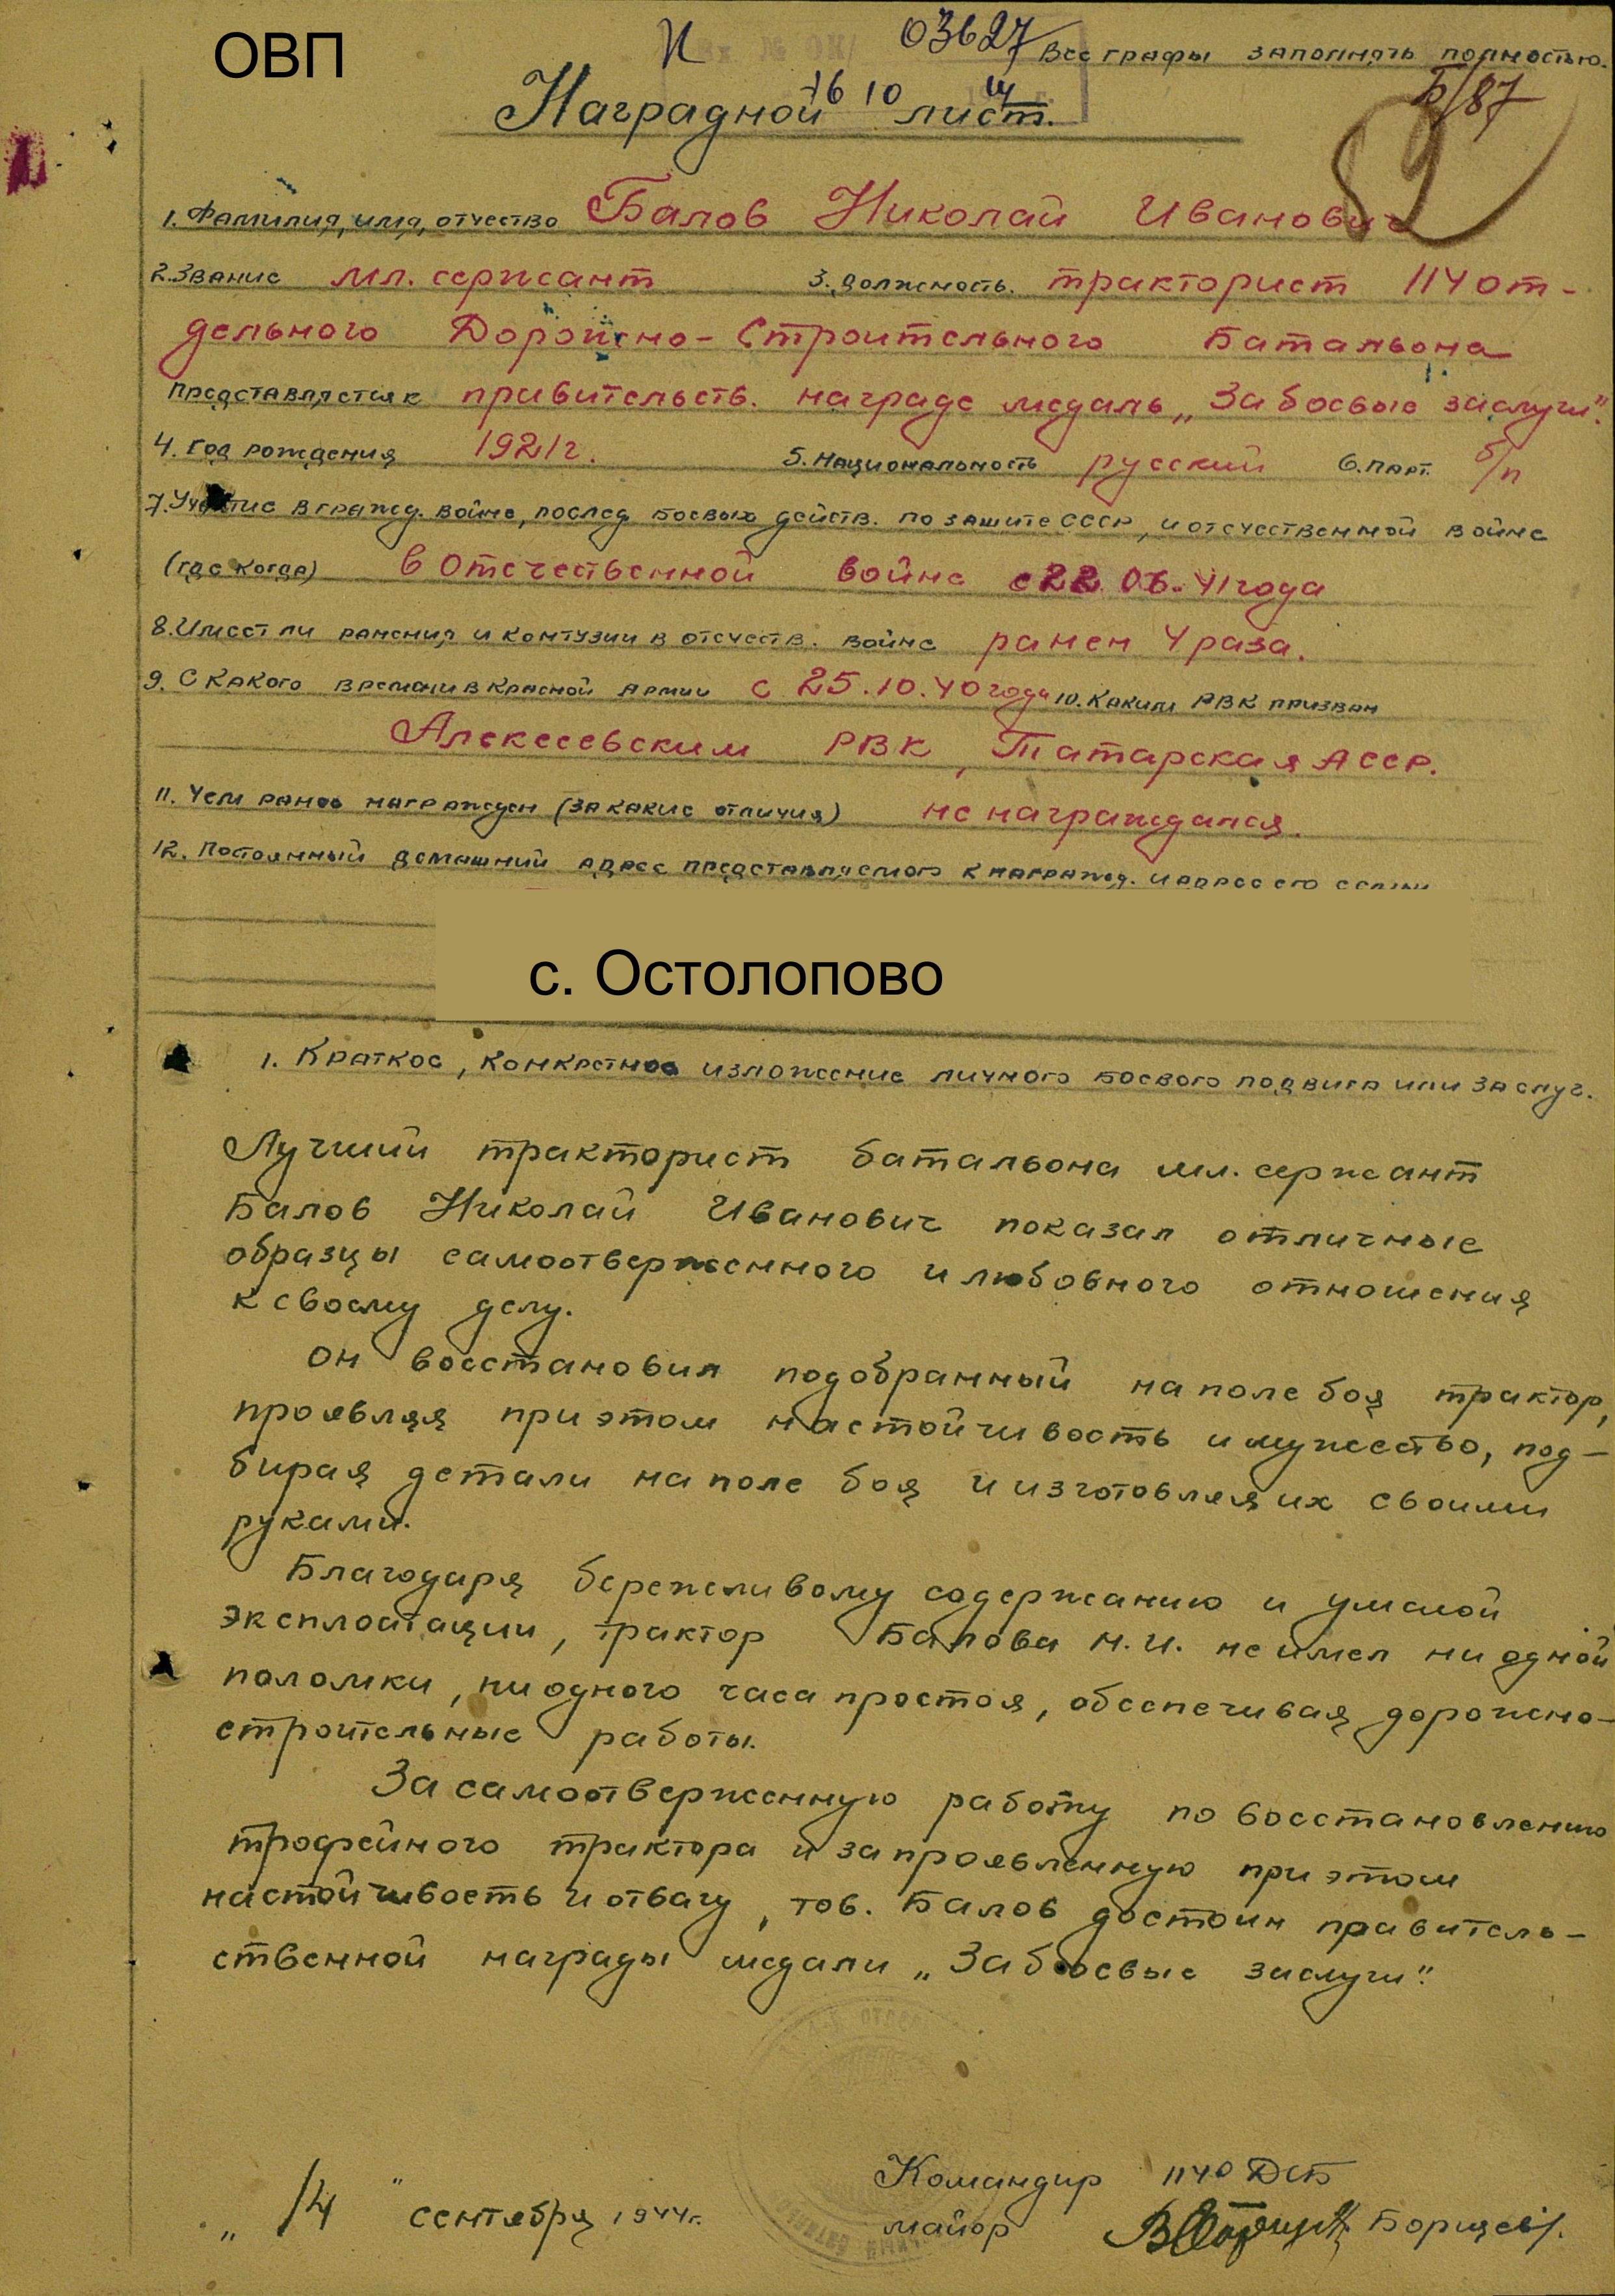 ОВП
И 03627 Все графы заполнять полностью.
16 10 44 Б/87
Наградной лист.
1. Фамилия, имя, отчество Балов Николай Иванович
2. Звание мл. сержант 3. Должность. тракторист 114 от-
дельного Дорожно-Строительного Батальона
Представляется к правительств. награде медаль „За боевые заслуги".
4. Год рождения 1921г. 5. Национальность русский 6. парт. б/п
7. Участие в гражд. войне, послед боевых действ. по защите СССР, и отечественной войне
(где когда) в Отечественной войне с 22.06.41 года
8. Имеет ли ранения и контузии в отечеств. войне ранен 4 раза.
9. С какого времени в Красной Армии с 25.10.40 года 10. Каким РВК призван
Алексеевским РВК, Татарская АССР.
11. Чем ранее награжден (за какие отличия) не награждался.
12. Постоянный домашний адрес представляемого к награжд. и адрес его семьи
с. Остолопово
1. Краткое, конкретное изложение личного боевого подвига или заслуг.
Лучший тракторист батальона мл. сержант
Балов Николай Иванович показал отличные
образцы самоотверженного и любовного отношения
к своему делу.
Он восстановил подобранный на поле боя трактор,
проявляя при этом настойчивость и мужество, под-
бирая детали на поле боя и изготовляя их своими
руками.
Благодаря бережливому содержанию и умелой
эксплоатации, трактор Балова Н.И. не имел ни одной
поломки, ни одного часа простоя, обеспечивая дорожно-
строительные работы.
За самоотверженную работу по восстановлению
трофейного трактора и за проявленную при этом
настойчивость и отвагу, тов. Балов достоин правитель-
ственной награды медали „За боевые заслуги".
Командир 114 о ДСБ
„14" сентября 1944г. майор Борщев/.